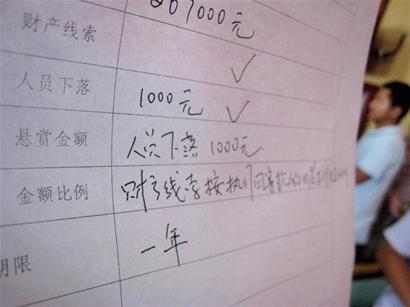 67000元
财产线索 ✓
人员下落 1000元 ✓
悬赏金额 人员下落1000元
金额比例 财产线索按执行回案款
期限 一年